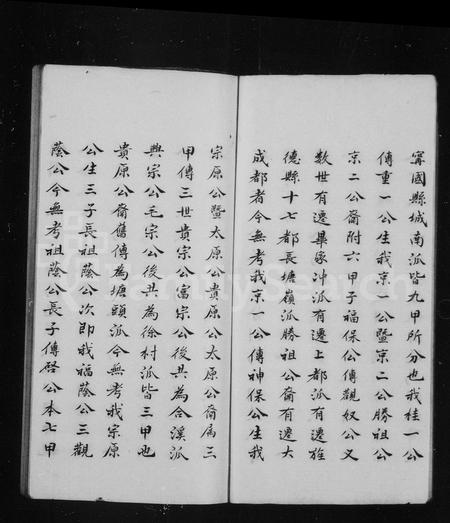 甯國縣城南派皆九甲所分也我桂一公
傳重一公生我京一公暨京二公勝祖公
京二公裔附六甲子福保公傳觀奴公又
數世有遷畢家冲派有遷上都派有遷旌
德縣十七都長塘嶺派勝祖公裔有遷大
成都者今無考我京一公傳神保公生我
宗原公暨太原公貴原公太原公裔屬三
甲傳三世貴宗公富宗公後共為合溪派
興宗公毛宗公後共為徐村派皆三甲也
貴原公裔舊傳為塘頭派今無考我宗原
公生三子長祖蔭公次即我福蔭公三觀
蔭公今無考祖蔭公長子傳啓公本七甲
FamilySearch